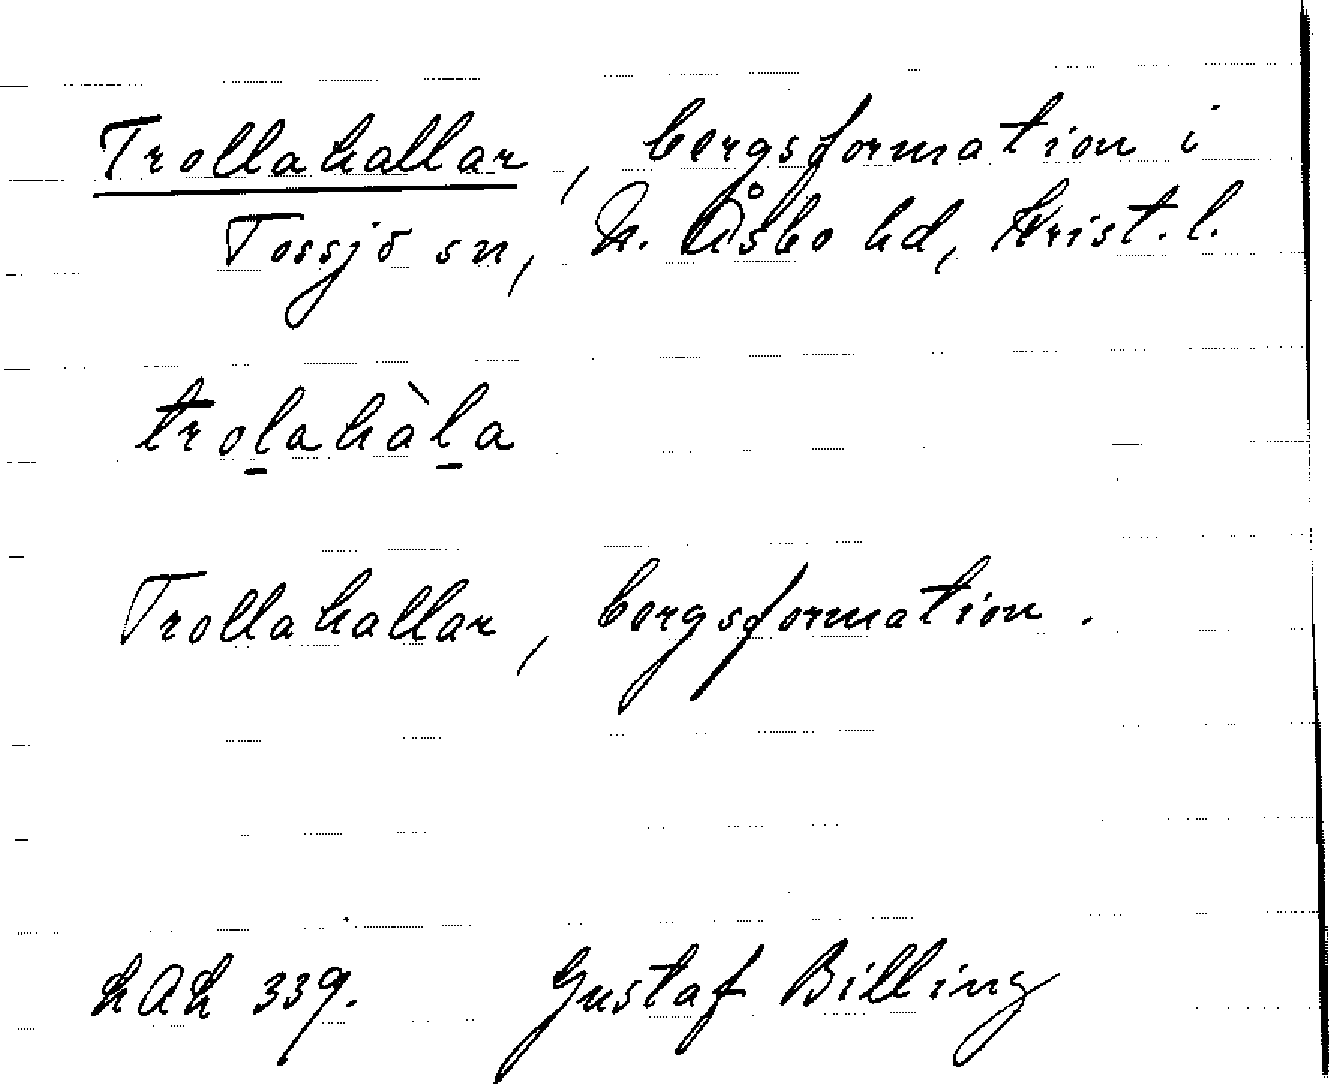 Trollahallar, bergsformation i
Tossjö sn, N. Åsbo hd, Krist. l.
trol̲ahàl̲a
Trollahallar, bergsformation.
LAL 339. Gustaf Billing